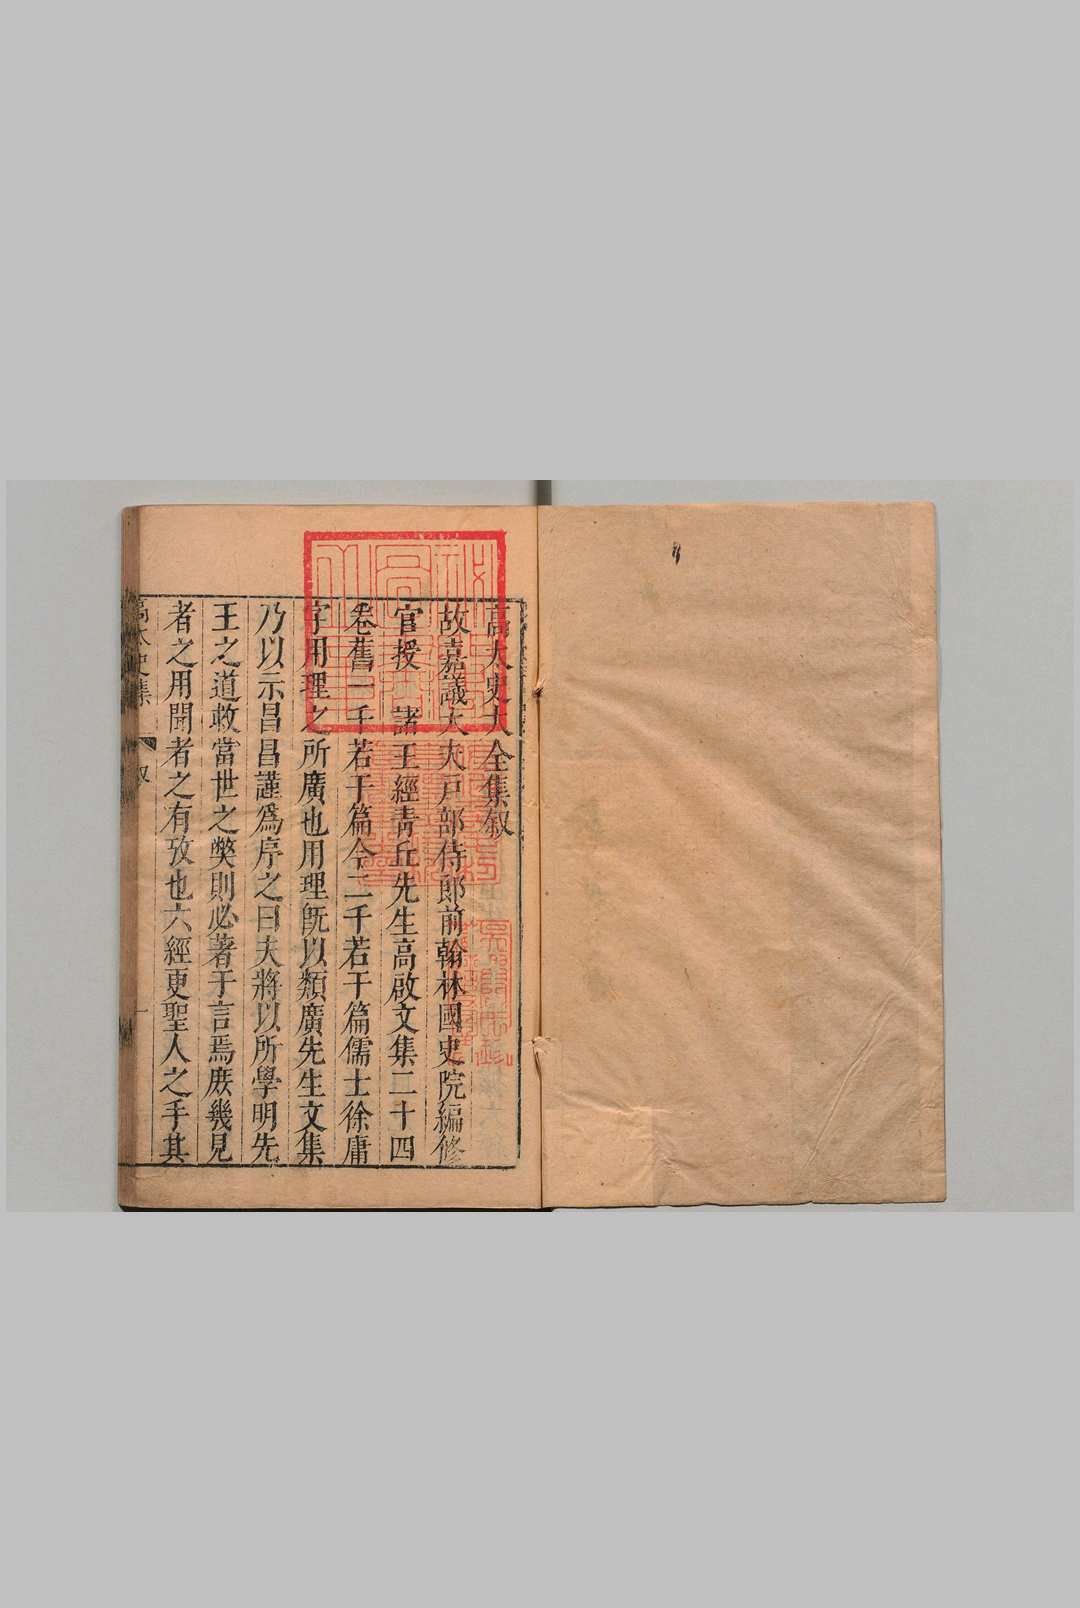 高太史大全集叙
故嘉議大夫戸部侍郎前翰林國史院編修
官授　諸王經青丘先生高啟文集二十四
卷舊一千若干篇今二千若干篇儒士徐庸
字用理之所廣也用理旣以類廣先生文集
乃以示昌昌謹爲序之曰夫將以所學明先
王之道救當世之弊則必著于言焉庶幾見
者之用聞者之有攷也六經更聖人之手其
高太史集
叙
一